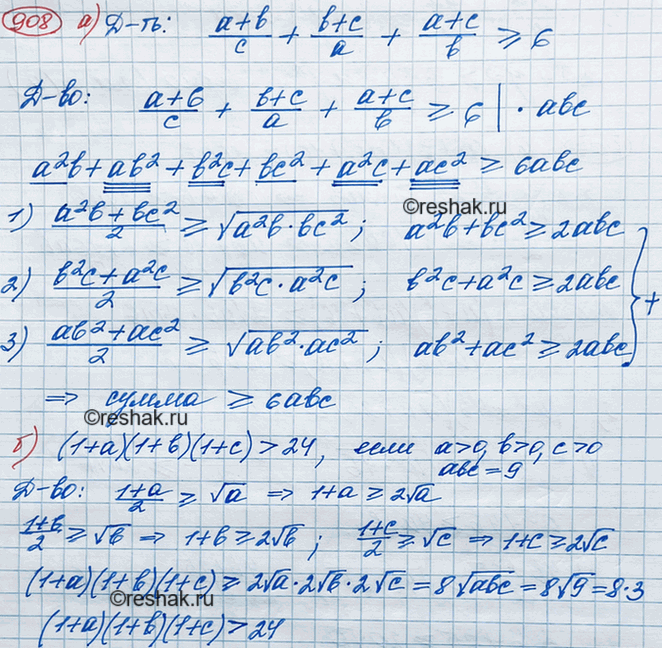 908 а) Д-ть: (a+b)/c + (b+c)/a + (a+c)/b ≥ 6
Д-во: (a+b)/c + (b+c)/a + (a+c)/b ≥ 6 | · abc
a²b + ab² + b²c + bc² + a²c + ac² ≥ 6abc
©reshak.ru
1) (a²b + bc²)/2 ≥ √(a²b · bc²); a²b + bc² ≥ 2abc
2) (b²c + a²c)/2 ≥ √(b²c · a²c); b²c + a²c ≥ 2abc } +
3) (ab² + ac²)/2 ≥ √(ab² · ac²); ab² + ac² ≥ 2abc
⇒ сумма ≥ 6abc
©reshak.ru
б) (1+a)(1+b)(1+c) > 24, если a>0, b>0, c>0
abc = 9
Д-во: (1+a)/2 ≥ √a ⇒ 1+a ≥ 2√a
(1+b)/2 ≥ √b ⇒ 1+b ≥ 2√b; (1+c)/2 ≥ √c ⇒ 1+c ≥ 2√c
(1+a)(1+b)(1+c) ≥ 2√a · 2√b · 2√c = 8√abc = 8√9 = 8·3
©reshak.ru
(1+a)(1+b)(1+c) > 24